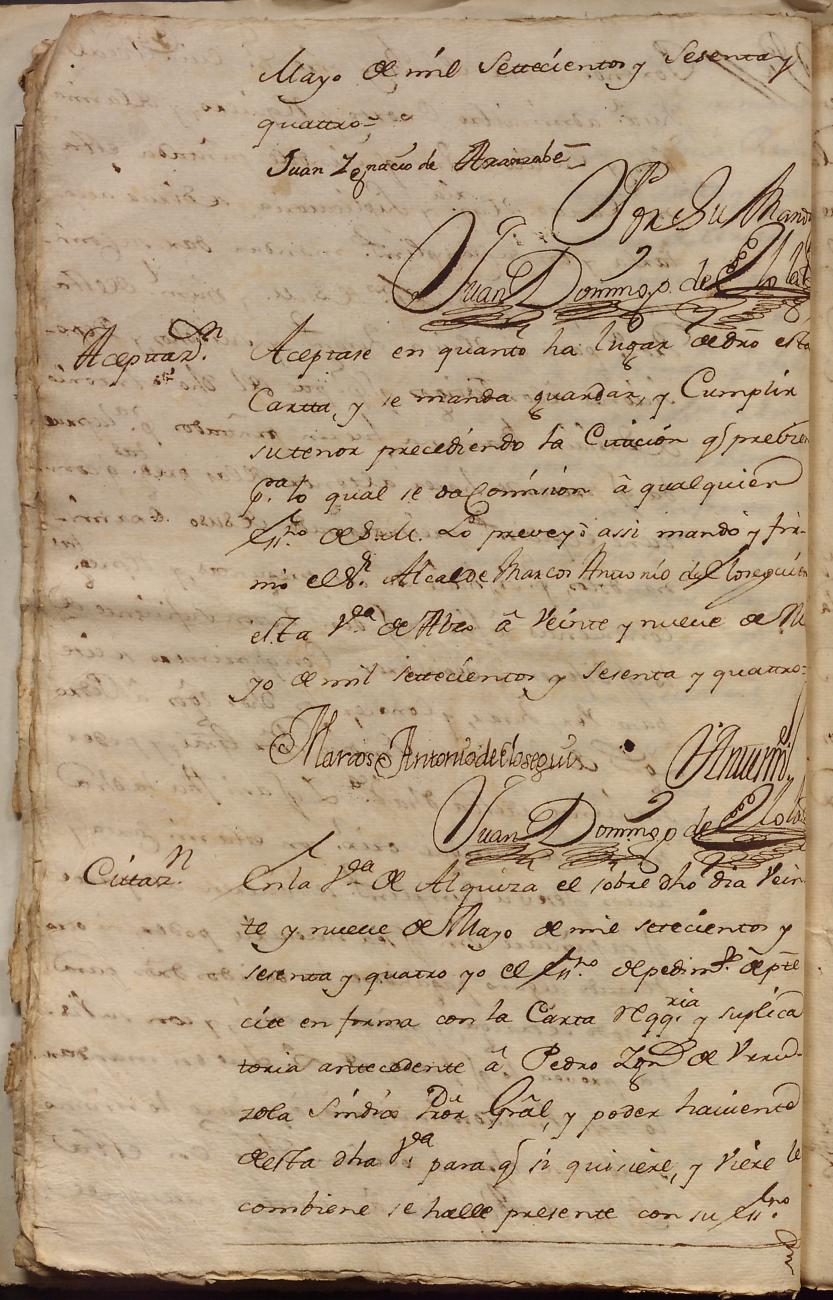 Mayo de mil Settecientos y Sesenta y
quattro=
Juan Ignacio de Aranzabe
Por Su Mand
Juan Domingo de
Aceptaz.n
Aceptase en quanto ha lugar de dro esta
Cartta, y se manda guardar, y Cumplir
su tenor precediendo la Citación q prebien
p.ra lo qual se da Comision â qualquier
Ess.no de S.M. Lo preveyó assi mandó y fir-
mó el S.r Alcalde Marcos Antonio de Elosegui en
esta V.da de â Veinte y nueve de Ma
yo de mil settecientos y sesenta y quattro=
Marcos Antonio de Elosegui
Antemi
Juan Domingo de
Cittaz.n
En la V.da de Alquiza el sobre dho dia Vein
te y nueve de Mayo de mil setecientos y
sesenta y quatro yo el Ess.no de pedim.to de pte
cité en forma con la Carta reqq.ria y suplica
toria antecedente â Pedro Ign.o de Urru-
zola Sindico Pror Grâl, y poder haviente
desta dha V.da para q si quisiere, y viere le
combiene se halle presente con su Ess.no